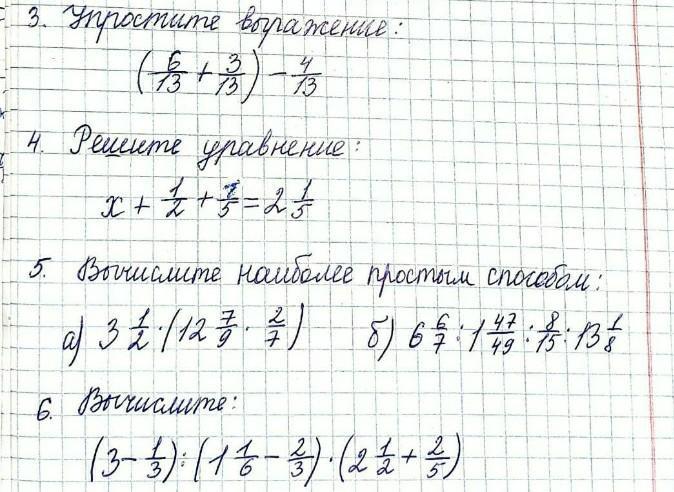 3. Упростите выражение:
(6/13 + 3/13) - 4/13
4. Решите уравнение:
x + 1/2 + 1/5 = 2 1/5
5. Вычислите наиболее простым способом:
а) 3 1/2 · (12 7/9 · 2/7) б) 6 6/7 : 1 47/49 : 8/15 : 13 1/8
6. Вычислите:
(3 - 1/3) : (1 1/6 - 2/3) · (2 1/2 + 2/5)